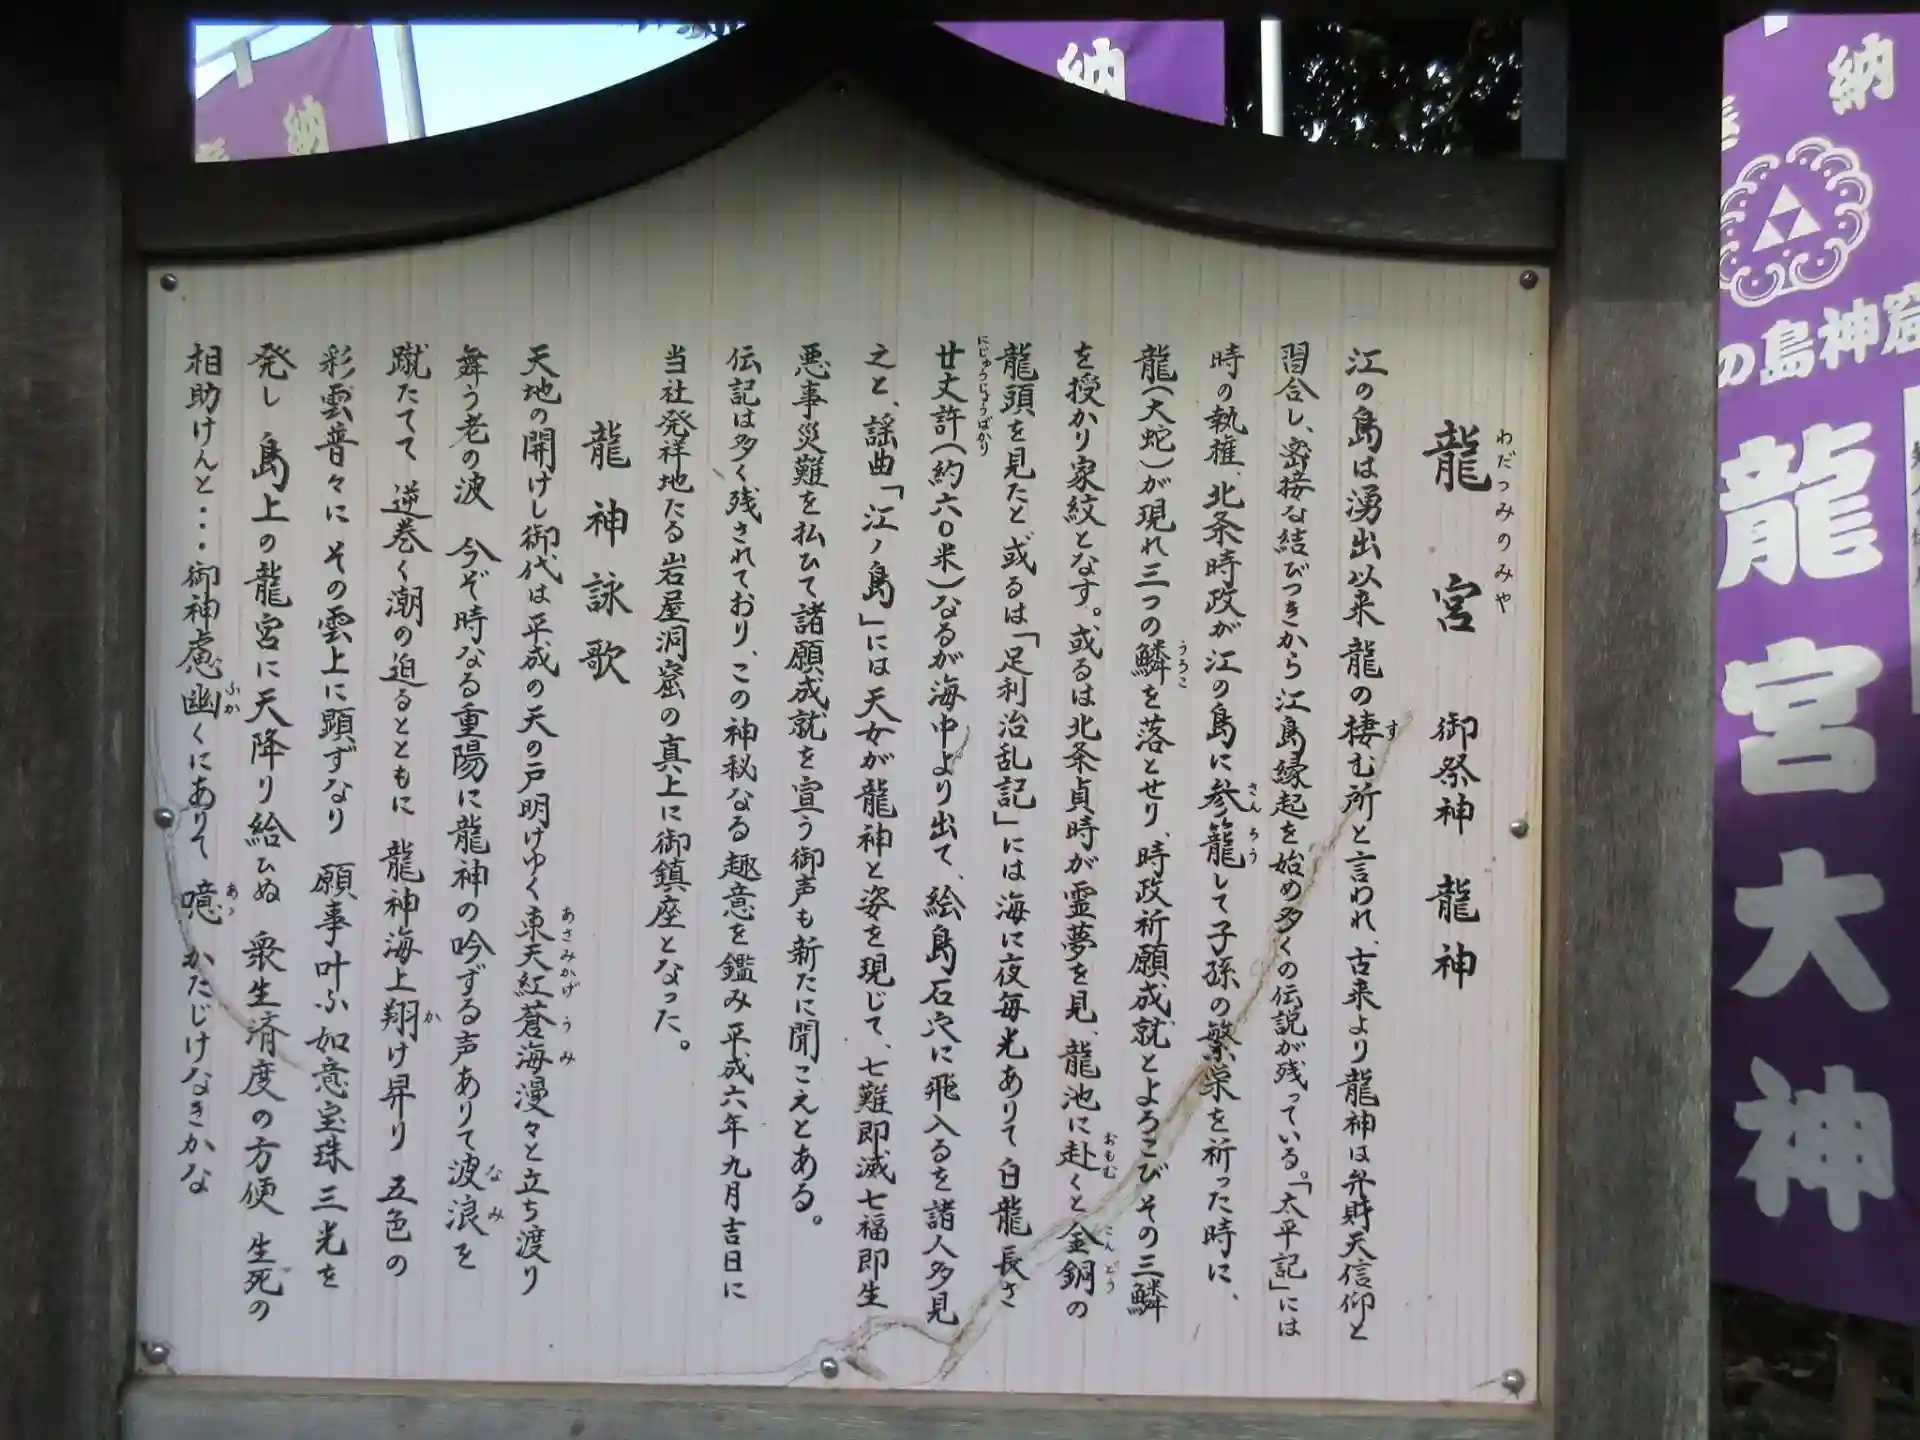 龍宮 御祭神 龍神
わだつみのみや
江の島は湧出以来 龍の棲む所と言われ、古来より龍神は弁財天信仰と
す
習合し、密接な結びつきから江島縁起を始め多くの伝説が残っている。「太平記」には
時の執権、北条時政が江の島に参籠して子孫の繁栄を祈った時に、
さんろう
龍(大蛇)が現れ三つの鱗を落とせり、時政祈願成就とよろこびその三鱗
うろこ
を授かり家紋となす。或るは北条貞時が霊夢を見、龍池に赴くと金銅の
おもむ
こんどう
龍頭を見たと或るは「足利治乱記」には海に夜毎光ありて白龍長さ
廿丈許(約六〇米)なるが海中より出て、絵島石穴に飛入るを諸人多見
にじゅうじょうばかり
之と、謡曲「江ノ島」には天女が龍神と姿を現じて、七難即滅七福即生
悪事災難を払ひて諸願成就を宣う御声も新たに聞こえとある。
伝記は多く残されており、この神秘なる趣意を鑑み平成六年九月吉日に
当社発祥地たる岩屋洞窟の真上に御鎮座となった。
龍神詠歌
天地の開けし御代は平成の天の戸明けゆく東天紅蒼海漫々と立ち渡り
あさみかげ うみ
舞う老の波 今ぞ時なる重陽に龍神の吟ずる声ありて波浪を
なみ
蹴たてて 逆巻く潮の迫るとともに 龍神海上翔け昇り 五色の
か
彩雲普々に その雲上に顕ずなり 願事叶ふ如意宝珠三光を
発し 島上の龍宮に天降り給ひぬ 衆生済度の方便 生死の
相助けんと・・・御神慮幽くにありて 噫 かたじけなきかな
ふか
あゝ
納
納
奉納
の島神窟
龍宮大神